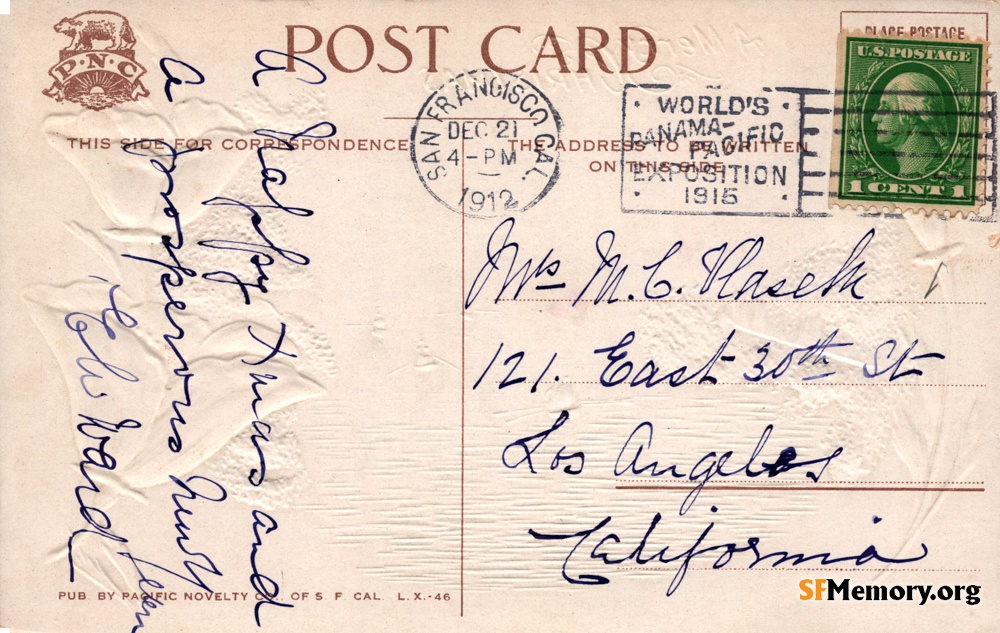 P·N·C
POST CARD
PLACE POSTAGE
U.S. POSTAGE
1 CENT 1
SAN FRANCISCO CAL.
DEC 21
4-PM
1912
WORLD'S
PANAMA-
PACIFIC
EXPOSITION
1915
THIS SIDE FOR CORRESPONDENCE
THE ADDRESS TO BE WRITTEN
ON THIS SIDE
A Happy Xmas and
a prosperous new
year
Ward
Mrs M. C. Vlasek
121. East 30th St
Los Angeles
California
PUB BY PACIFIC NOVELTY CO. OF S. F. CAL. L.X.-46
SFMemory.org